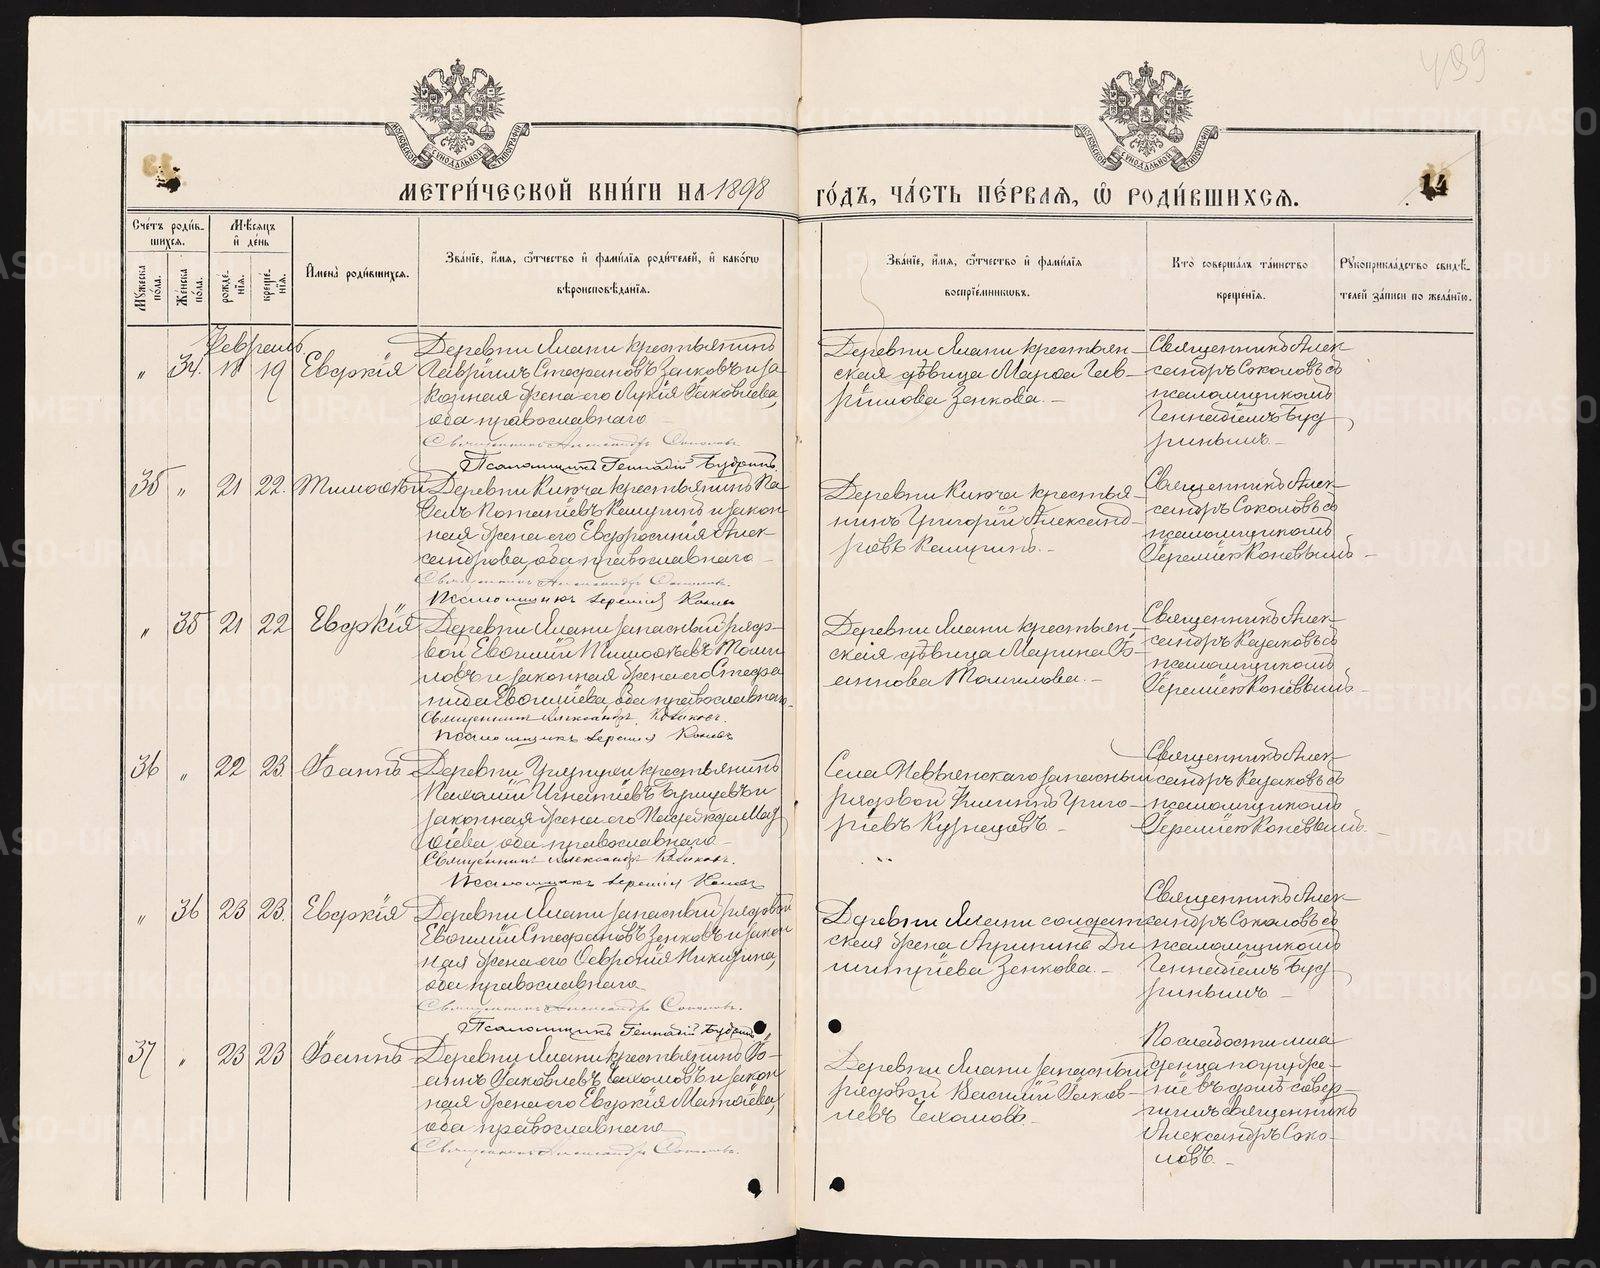 499
14
МОСКОВСКОЙ СѴНОДАЛЬНОЙ ТИПОГРАФІИ
МОСКОВСКОЙ СѴНОДАЛЬНОЙ ТИПОГРАФІИ
МЕТРИ́ЧЕСКОЙ КНИ́ГИ НА 1898 ГО́ДЪ, ЧА́СТЬ ПЕ́РВАЯ, Ѽ РОДИ́ВШИХСЯ.
Сче́тъ роди́в-
шихся.
Мѣ́сяцъ
и҆ де́нь
Мꙋ́жеска по́ла.
Же́нска по́ла.
рожде́нїѧ.
креще́нїѧ.
И҆мена̀ роди́вшихсѧ.
Зва́нїе, и҆́мѧ, ѻ҆́тчество и҆ фами́лїѧ роди́телей, и҆ како́гѡ
вѣроисповѣ́данїѧ.
Зва́нїе, и҆́мѧ, ѻ҆́тчество и҆ фами́лїѧ
воспрїе́мникѡвъ.
Кто̀ соверша́лъ та́инство
креще́нїѧ.
Рꙋкоприкла́дство свидѣ́-
телей за́писи по жела́нїю.
Февраль.
" 34. 18 19 Евдокія
Деревни Ялани крестьянинъ
Гавріилъ Стефановъ Зенковъ и за-
конная жена его Лукія Іаковлева,
оба православнаго
Священникъ Александръ Соколовъ.
Псаломщикъ Геннадій Будринъ.
Деревни Ялани крестьян-
ская дѣвица Марѳа Гав-
ріилова Зенкова.
Священникъ Алек-
сандръ Соколовъ съ
псаломщикомъ
Геннадіемъ Буд-
ринымъ.
35 " 21 22. Тимоѳей
Деревни Ключа крестьянинъ Па-
велъ Потапіевъ Кашугинъ и закон-
ная жена его Евфросинія Алек-
сандрова, оба православнаго
Священникъ Александръ Соколовъ.
Псаломщикъ Іеремія Коневъ
Деревни Ключа крестья-
нинъ Григорій Александ-
ровъ Кашугинъ.
Священникъ Алек-
сандръ Соколовъ съ
псаломщикомъ
Іереміею Коневымъ
" 35 21 22 Евдокія
Деревни Ялани запасный рядо-
вой Евѳимій Тимоѳеевъ Томи-
ловъ и законная жена его Стефа-
нида Евѳиміева, оба православнаго
Священникъ Александръ Казаковъ.
Псаломщикъ Іеремія Коневъ
Деревни Ялани крестьян-
ская дѣвица Марина Іо-
аннова Томилова.
Священникъ Алек-
сандръ Казаковъ съ
псаломщикомъ
Іереміею Коневымъ
36 " 22 23 Іоаннъ
Деревни крестьянинъ
Пахомій Игнатіевъ и
законная жена его Надежда Мат-
ѳіева, оба православнаго
Священникъ Александръ Казаковъ.
Псаломщикъ Іеремія Коневъ
Села Невьянскаго запасный
рядовой Филиппъ Григо-
ріевъ Кузнецовъ
Священникъ Алек-
сандръ Казаковъ съ
псаломщикомъ
Іереміею Коневымъ.
" 36 23 23. Евдокія
Деревни Ялани запасный рядовой
Евѳимій Стефановъ Зенковъ и закон-
ная жена его Ѳевронія Никитина,
оба православнаго
Священникъ Александръ Соколовъ.
Псаломщикъ Геннадій Будринъ
Деревни Ялани солдат-
ская жена Агрипина Ди-
митріева Зенкова.
Священникъ Алек-
сандръ Соколовъ съ
псаломщикомъ
Геннадіемъ Буд-
ринымъ
37 " 23 23 Іоаннъ
Деревни Ялани крестьянинъ Іо-
аннъ Іаковлевъ Чахомовъ и закон-
ная жена его Евдокія Матѳіева,
оба православнаго
Священникъ Александръ Соколовъ.
Деревни Ялани запасный
рядовой Василій Іаков-
левъ Чахомовъ.
По слабости мла-
денца погруже-
ніе въ домѣ совер-
шилъ священникъ
Александръ Соко-
ловъ.
METRIKI.GASO-URAL.RU